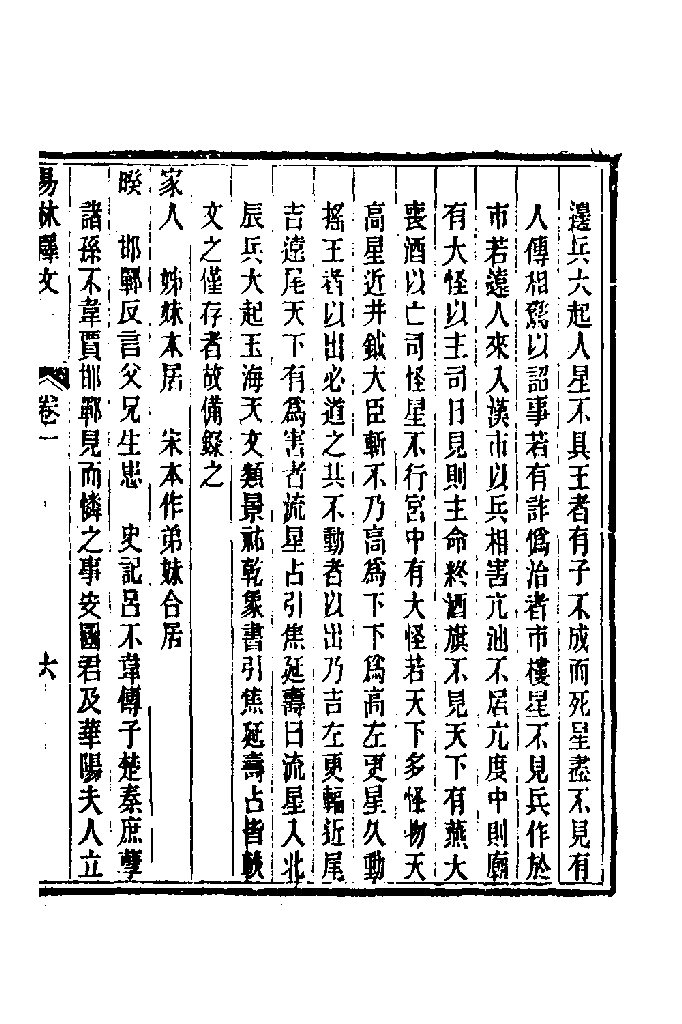 邊兵大起人星不具王者有子不成而死星盡不見有
人傳相驚以詔事若有詐僞治者市樓星不見兵作於
市若遠人來入漢市以兵相害亢池不居亢度中則廟
有大怪以主司日見則主命終酒旗不見天下有燕大
喪酒以亡司怪星不行宮中有大怪若天下多怪物天
高星近井鉞大臣斬不乃高爲下下爲高左更星久動
搖王者以出必道之其不動者以出乃吉左更輻近尾
吉遠尾天下有爲害者流星占引焦延壽曰流星入北
辰兵大起玉海天文類景祐乾象書引焦延壽占皆軼
文之僅存者故備錄之
家人　姊妹本居　宋本作弟妹合居
睽　邯鄲反言父兄生患　史記呂不韋傳子楚秦庶孽
諸孫不韋賈邯鄲見而憐之事安國君及華陽夫人立
易林釋文　卷一　六